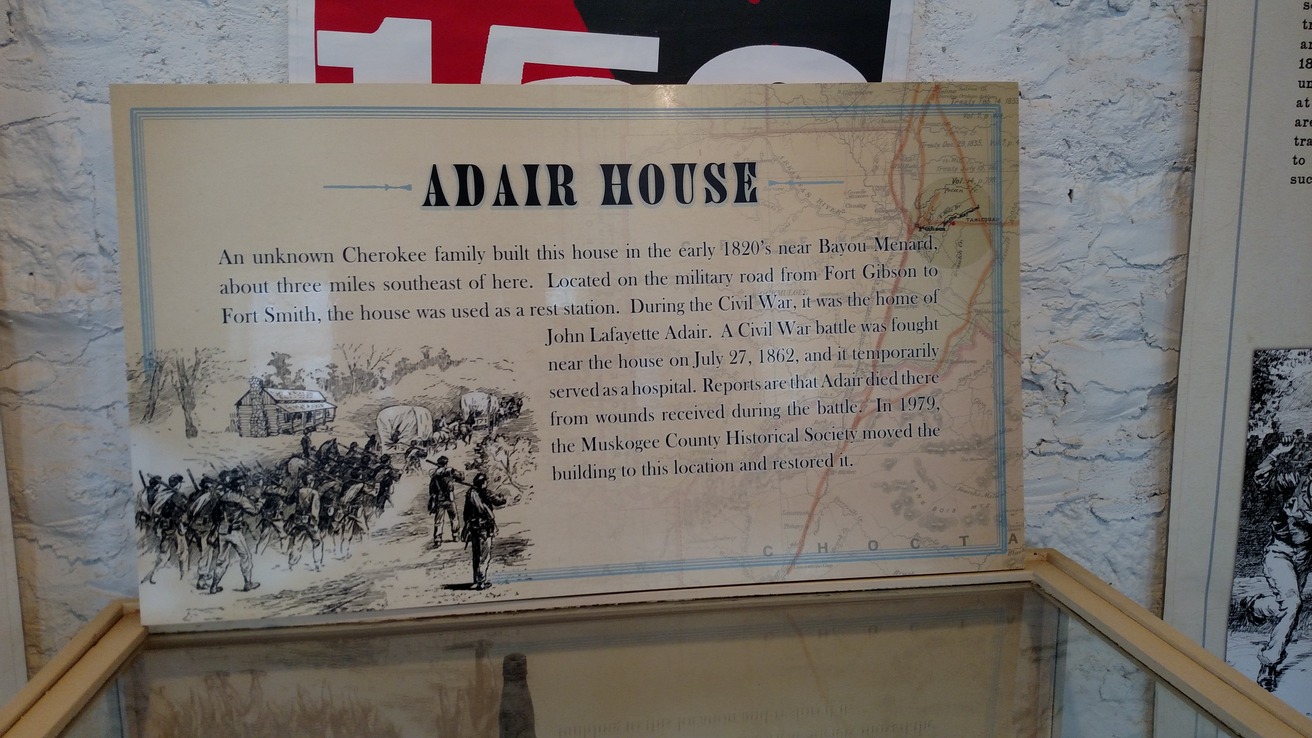 15
ADAIR HOUSE
An unknown Cherokee family built this house in the early 1820's near Bayou Menard,
about three miles southeast of here. Located on the military road from Fort Gibson to
Fort Smith, the house was used as a rest station. During the Civil War, it was the home of
John Lafayette Adair. A Civil War battle was fought
near the house on July 27, 1862, and it temporarily
served as a hospital. Reports are that Adair died there
from wounds received during the battle. In 1979,
the Muskogee County Historical Society moved the
building to this location and restored it.
CHOCTA